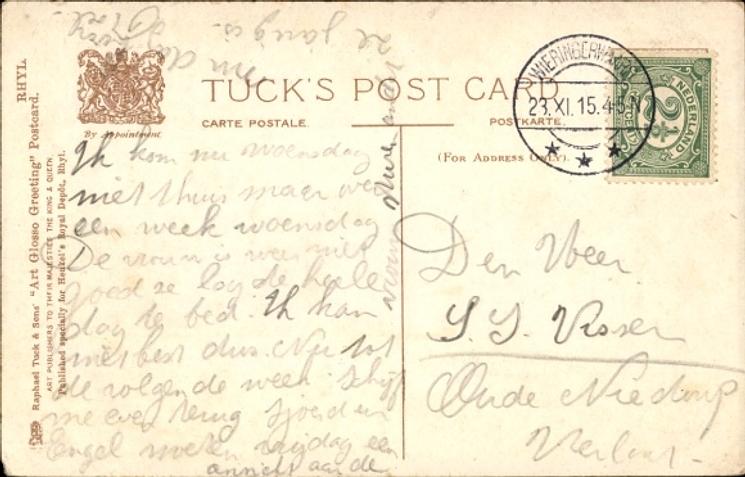 TUCK'S POST CARD
CARTE POSTALE.
POSTKARTE.
(FOR ADDRESS ONLY).
By Appointment
RHYL.
Raphael Tuck & Sons' "Art Glosso Greeting" Postcard.
ART PUBLISHERS TO THEIR MAJESTIES THE KING & QUEEN.
Published specially for Henkel's Royal Depôt, Rhyl.
WIERINGERWAARD
23.XI.15.4-5N
NEDERLAND
2½
CENT
Ik kom nu woensdag
niet thuis maar over
een week woensdag
De vrouw is weer niet
goed ze lag de heele
dag te bed. Ik kan
niet best dus. Nu tot
de volgende week. Schrijf
me even terug Sjoerd en
Engel moeten vrijdag een
ansicht aan de
vrouw sturen want
ze jarig is.
Den Heer
S. S. Visser
Oude Niedorp
Verlaat.